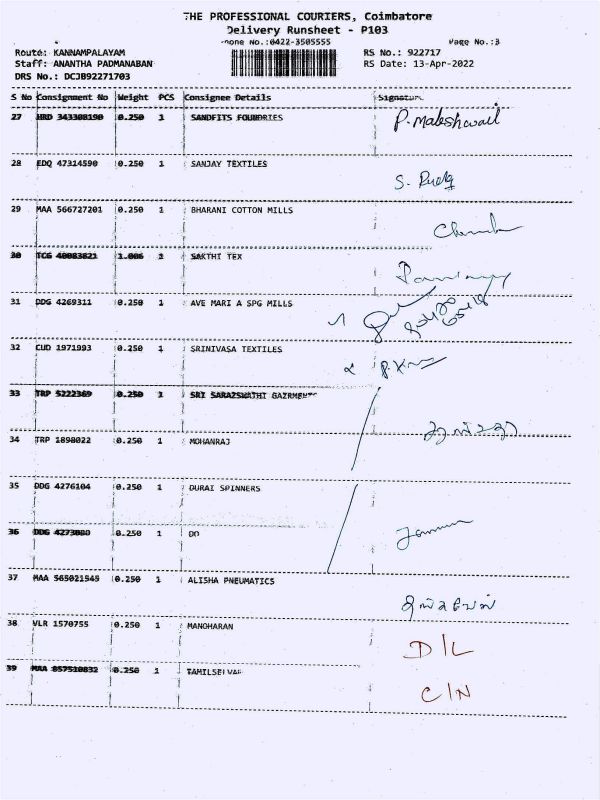 THE PROFESSIONAL COURIERS, Coimbatore
Delivery Runsheet - P103
Phone No.:0422-3505555 Page No.:3
Route: KANNAMPALAYAM RS No.: 922717
Staff: ANANTHA PADMANABAN RS Date: 13-Apr-2022
DRS No.: DCJB92271703
S No Consignment No Weight PCS Consignee Details Signature
27 HRD 343308190 0.250 1 SANDFITS FOUNDRIES P. Maheshwari
28 EDQ 47314590 0.250 1 SANJAY TEXTILES
29 MAA 566727201 0.250 1 BHARANI COTTON MILLS
30 TCG 40083821 1.006 1 SAKTHI TEX
31 DDG 4269311 0.250 1 AVE MARI A SPG MILLS
32 CUD 1971993 0.250 1 SRINIVASA TEXTILES
33 TRP 5222369 0.250 1 SRI SARAZSWATHI GAZRMENTS
34 TRP 1898022 0.250 1 MOHANRAJ
35 DDG 4276104 0.250 1 DURAI SPINNERS
36 DDG 4273080 0.250 1 DO
37 MAA 565021949 0.250 1 ALISHA PNEUMATICS
38 VLR 1570755 0.250 1 MANOHARAN D/L
39 MAA 857510832 0.250 1 TAMILSELVAN C/N